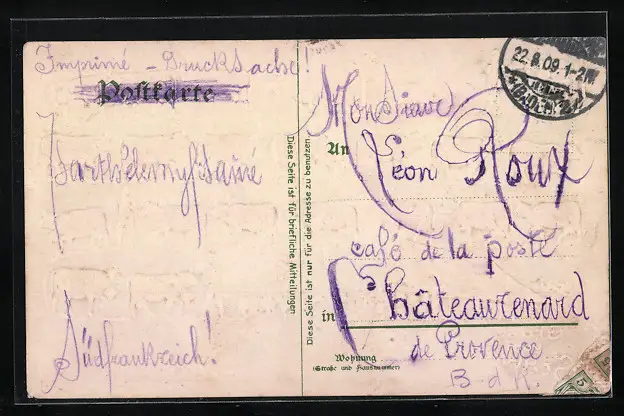 Imprimé - Drucksache!
Postkarte
Südfrankreich!
Diese Seite ist für briefliche Mitteilungen
Diese Seite ist nur für die Adresse zu benutzen
22.8.09.1-2N.
Monsieur
An Léon Roux
café de la poste
in Châteaurenard
de Provence
Wohnung
(Straße und Hausnummer)
B-d-R.
5